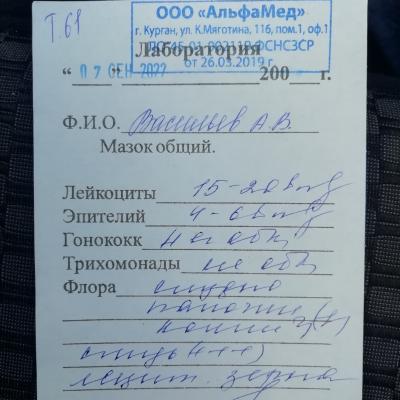 Т.61
ООО «АльфаМед»
г. Курган, ул. К.Мяготина, 116, пом.1, оф.1
ЛО-45-01-002119 ФСНСЗСР
от 26.03.2019 г.
Лаборатория
“07” СЕН 2022 200 г.
Ф.И.О. Васильев А.В.
Мазок общий.
Лейкоциты 15-20 в п/з
Эпителий 4-6 в п/з
Гонококк не обн
Трихомонады не обн
Флора скудно
палочки
кокки
слизь (+++)
лецит. зерна